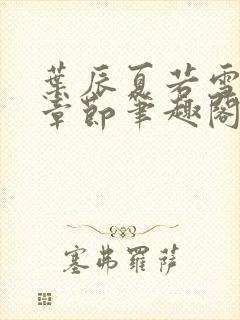 葉辰夏若雪
章節筆趣閣
塞弗羅薩